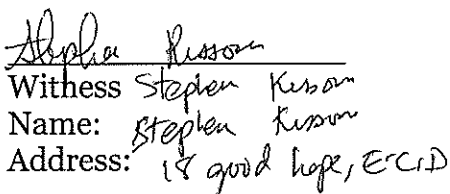 Stephen Kissoon
Witness Stephen Kissoon
Name: Stephen Kissoon
Address: 18 good hope, E.C.D